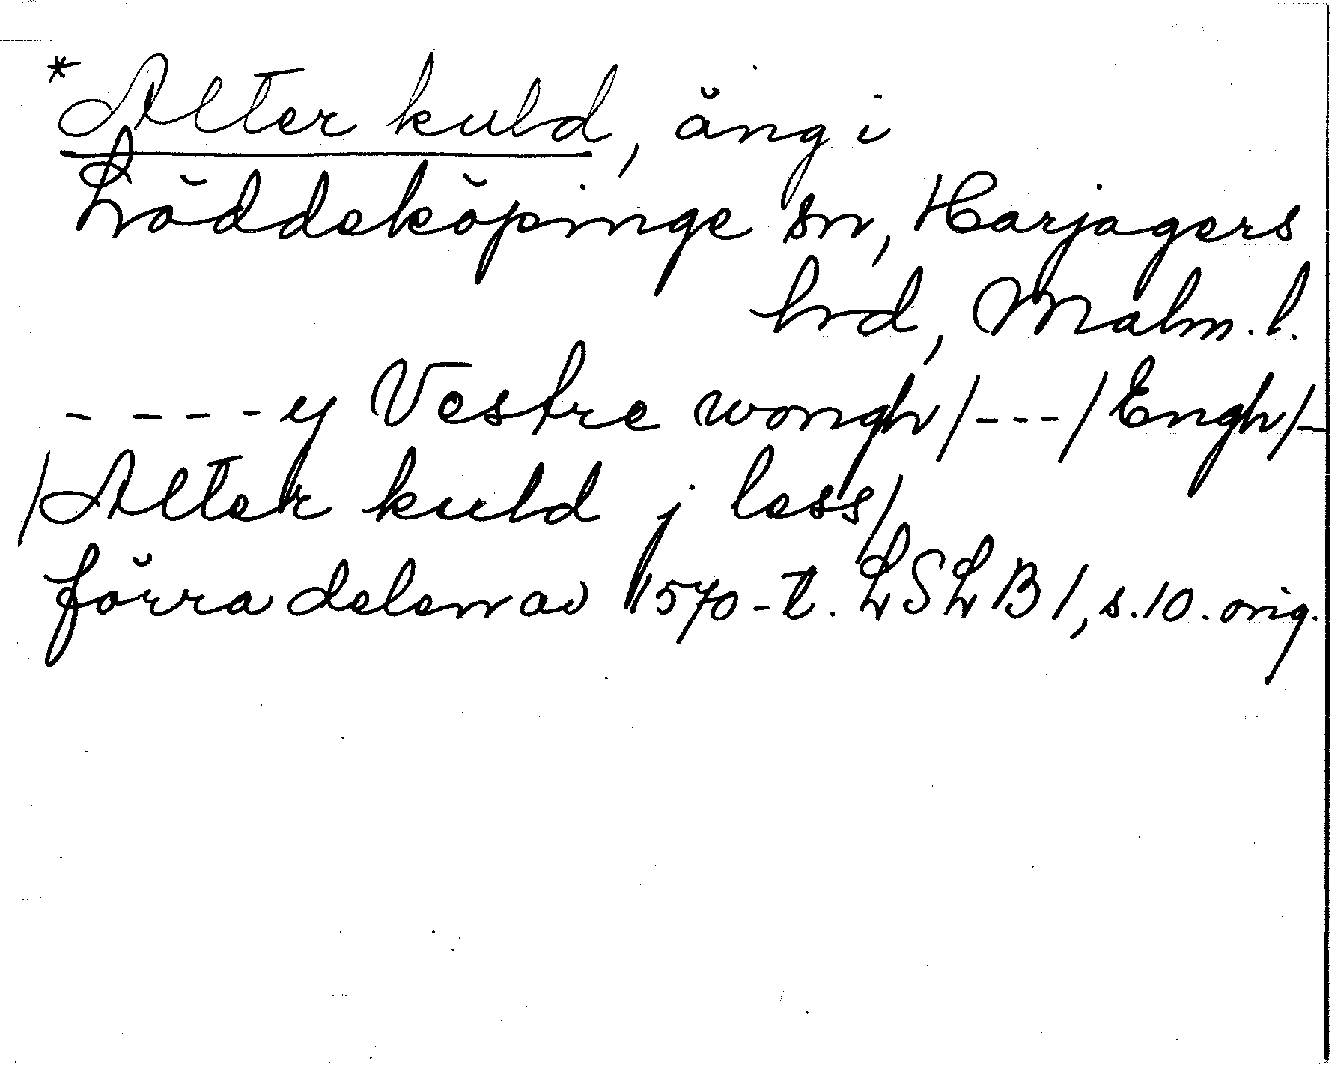 *Alter kuld, äng i
Löddeköpinge sn, Harjagers
hrd, Malm. l.
- - - - y Vestre wongh/---/Engh/-
/Alter kuld j less/
förra delen av 1570-t. LSLB 1, s. 10. orig.